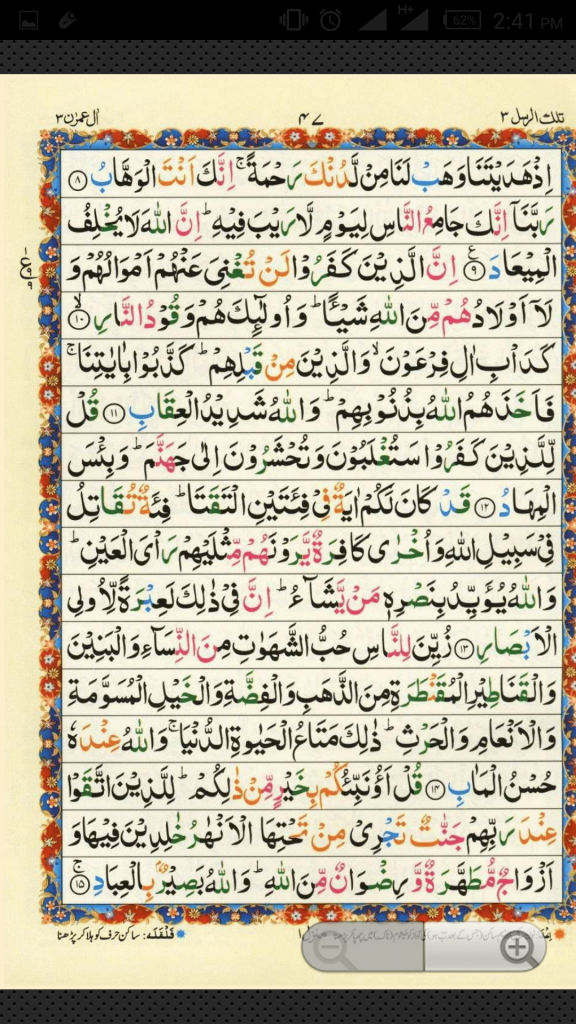 62% 2:41 PM
H+
تلك الرسل ٣ ٤٧ اٰل عمرٰن ٣
اِذْ هَدَيْتَنَا وَهَبْ لَنَا مِنْ لَّدُنْكَ رَحْمَةً ۚ اِنَّكَ اَنْتَ الْوَهَّابُ ﴿٨﴾
رَبَّنَاۤ اِنَّكَ جَامِعُ النَّاسِ لِيَوْمٍ لَّا رَيْبَ فِيْهِ ؕ اِنَّ اللّٰهَ لَا يُخْلِفُ
الْمِيْعَادَ ﴿٩﴾ اِنَّ الَّذِيْنَ كَفَرُوْا لَنْ تُغْنِىَ عَنْهُمْ اَمْوَالُهُمْ وَ
لَاۤ اَوْلَادُهُمْ مِّنَ اللّٰهِ شَيْـًٔا ؕ وَاُولٰٓئِكَ هُمْ وَقُوْدُ النَّارِ ﴿١٠﴾ ۙ
كَدَاْبِ اٰلِ فِرْعَوْنَ ۙ وَالَّذِيْنَ مِنْ قَبْلِهِمْ ؕ كَذَّبُوْا بِاٰيٰتِنَا ۚ
فَاَخَذَهُمُ اللّٰهُ بِذُنُوْبِهِمْ ؕ وَاللّٰهُ شَدِيْدُ الْعِقَابِ ﴿١١﴾ قُلْ
لِّلَّذِيْنَ كَفَرُوْا سَتُغْلَبُوْنَ وَتُحْشَرُوْنَ اِلٰى جَهَنَّمَ ؕ وَبِئْسَ
الْمِهَادُ ﴿١٢﴾ قَدْ كَانَ لَكُمْ اٰيَةٌ فِىْ فِئَتَيْنِ الْتَقَتَا ؕ فِئَةٌ تُقَاتِلُ
فِىْ سَبِيْلِ اللّٰهِ وَاُخْرٰى كَافِرَةٌ يَّرَوْنَهُمْ مِّثْلَيْهِمْ رَاْىَ الْعَيْنِ ؕ
وَاللّٰهُ يُؤَيِّدُ بِنَصْرِهٖ مَنْ يَّشَآءُ ؕ اِنَّ فِىْ ذٰلِكَ لَعِبْرَةً لِّاُولِى
الْاَبْصَارِ ﴿١٣﴾ زُيِّنَ لِلنَّاسِ حُبُّ الشَّهَوٰتِ مِنَ النِّسَآءِ وَالْبَنِيْنَ
وَالْقَنَاطِيْرِ الْمُقَنْطَرَةِ مِنَ الذَّهَبِ وَالْفِضَّةِ وَالْخَيْلِ الْمُسَوَّمَةِ
وَالْاَنْعَامِ وَالْحَرْثِ ؕ ذٰلِكَ مَتَاعُ الْحَيٰوةِ الدُّنْيَا ۚ وَاللّٰهُ عِنْدَهٗ
حُسْنُ الْمَاٰبِ ﴿١٤﴾ قُلْ اَؤُنَبِّئُكُمْ بِخَيْرٍ مِّنْ ذٰلِكُمْ ؕ لِلَّذِيْنَ اتَّقَوْا
عِنْدَ رَبِّهِمْ جَنّٰتٌ تَجْرِىْ مِنْ تَحْتِهَا الْاَنْهٰرُ خٰلِدِيْنَ فِيْهَا وَ
اَزْوَاجٌ مُّطَهَّرَةٌ وَّرِضْوَانٌ مِّنَ اللّٰهِ ؕ وَاللّٰهُ بَصِيْرٌۢ بِالْعِبَادِ ﴿١٥﴾ ۚ
منزل ١ قلقلہ: ساکن حرف کو ہلا کر پڑھنا